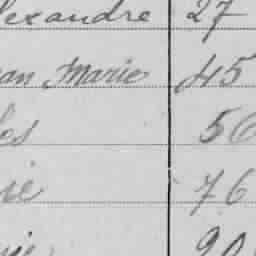 lexandre 27
an Marie 45
es 56
ie 76
ie 90